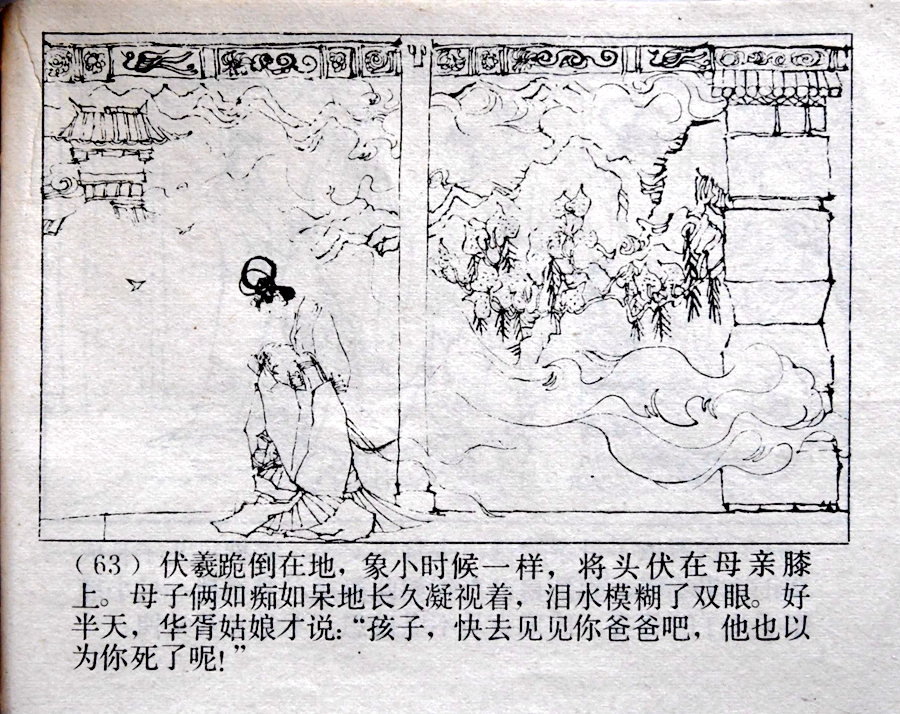 （63）伏羲跪倒在地，象小时候一样，将头伏在母亲膝
上。母子俩如痴如呆地长久凝视着，泪水模糊了双眼。好
半天，华胥姑娘才说：“孩子，快去见见你爸爸吧，他也以
为你死了呢！”